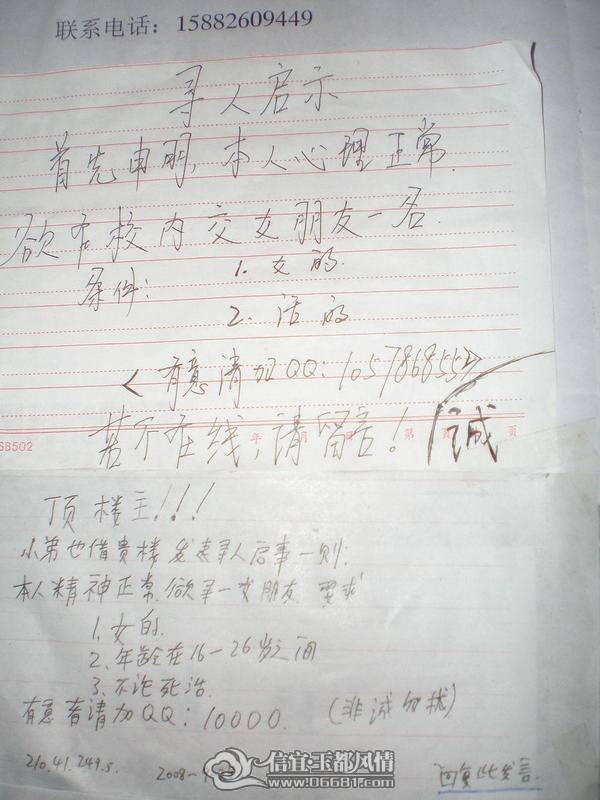 联系电话：15882609449
寻人启示
首先申明，本人心理正常.
欲在校内交女朋友一名.
条件：1. 女的.
2. 活的
<有意请加QQ：105786855>
若不在线，请留言！ 诚
年 月 第 页
68502
顶楼主!!!
小弟也借贵楼发表寻人启事一则：
本人精神正常.欲寻一女朋友.要求
1.女的.
2.年龄在16-26岁之间
3.不论死活.
有意者请加QQ：10000. (非诚勿扰)
210.41.249.5. 2008- 回复此发言
信宜玉都风情
www.06681.com